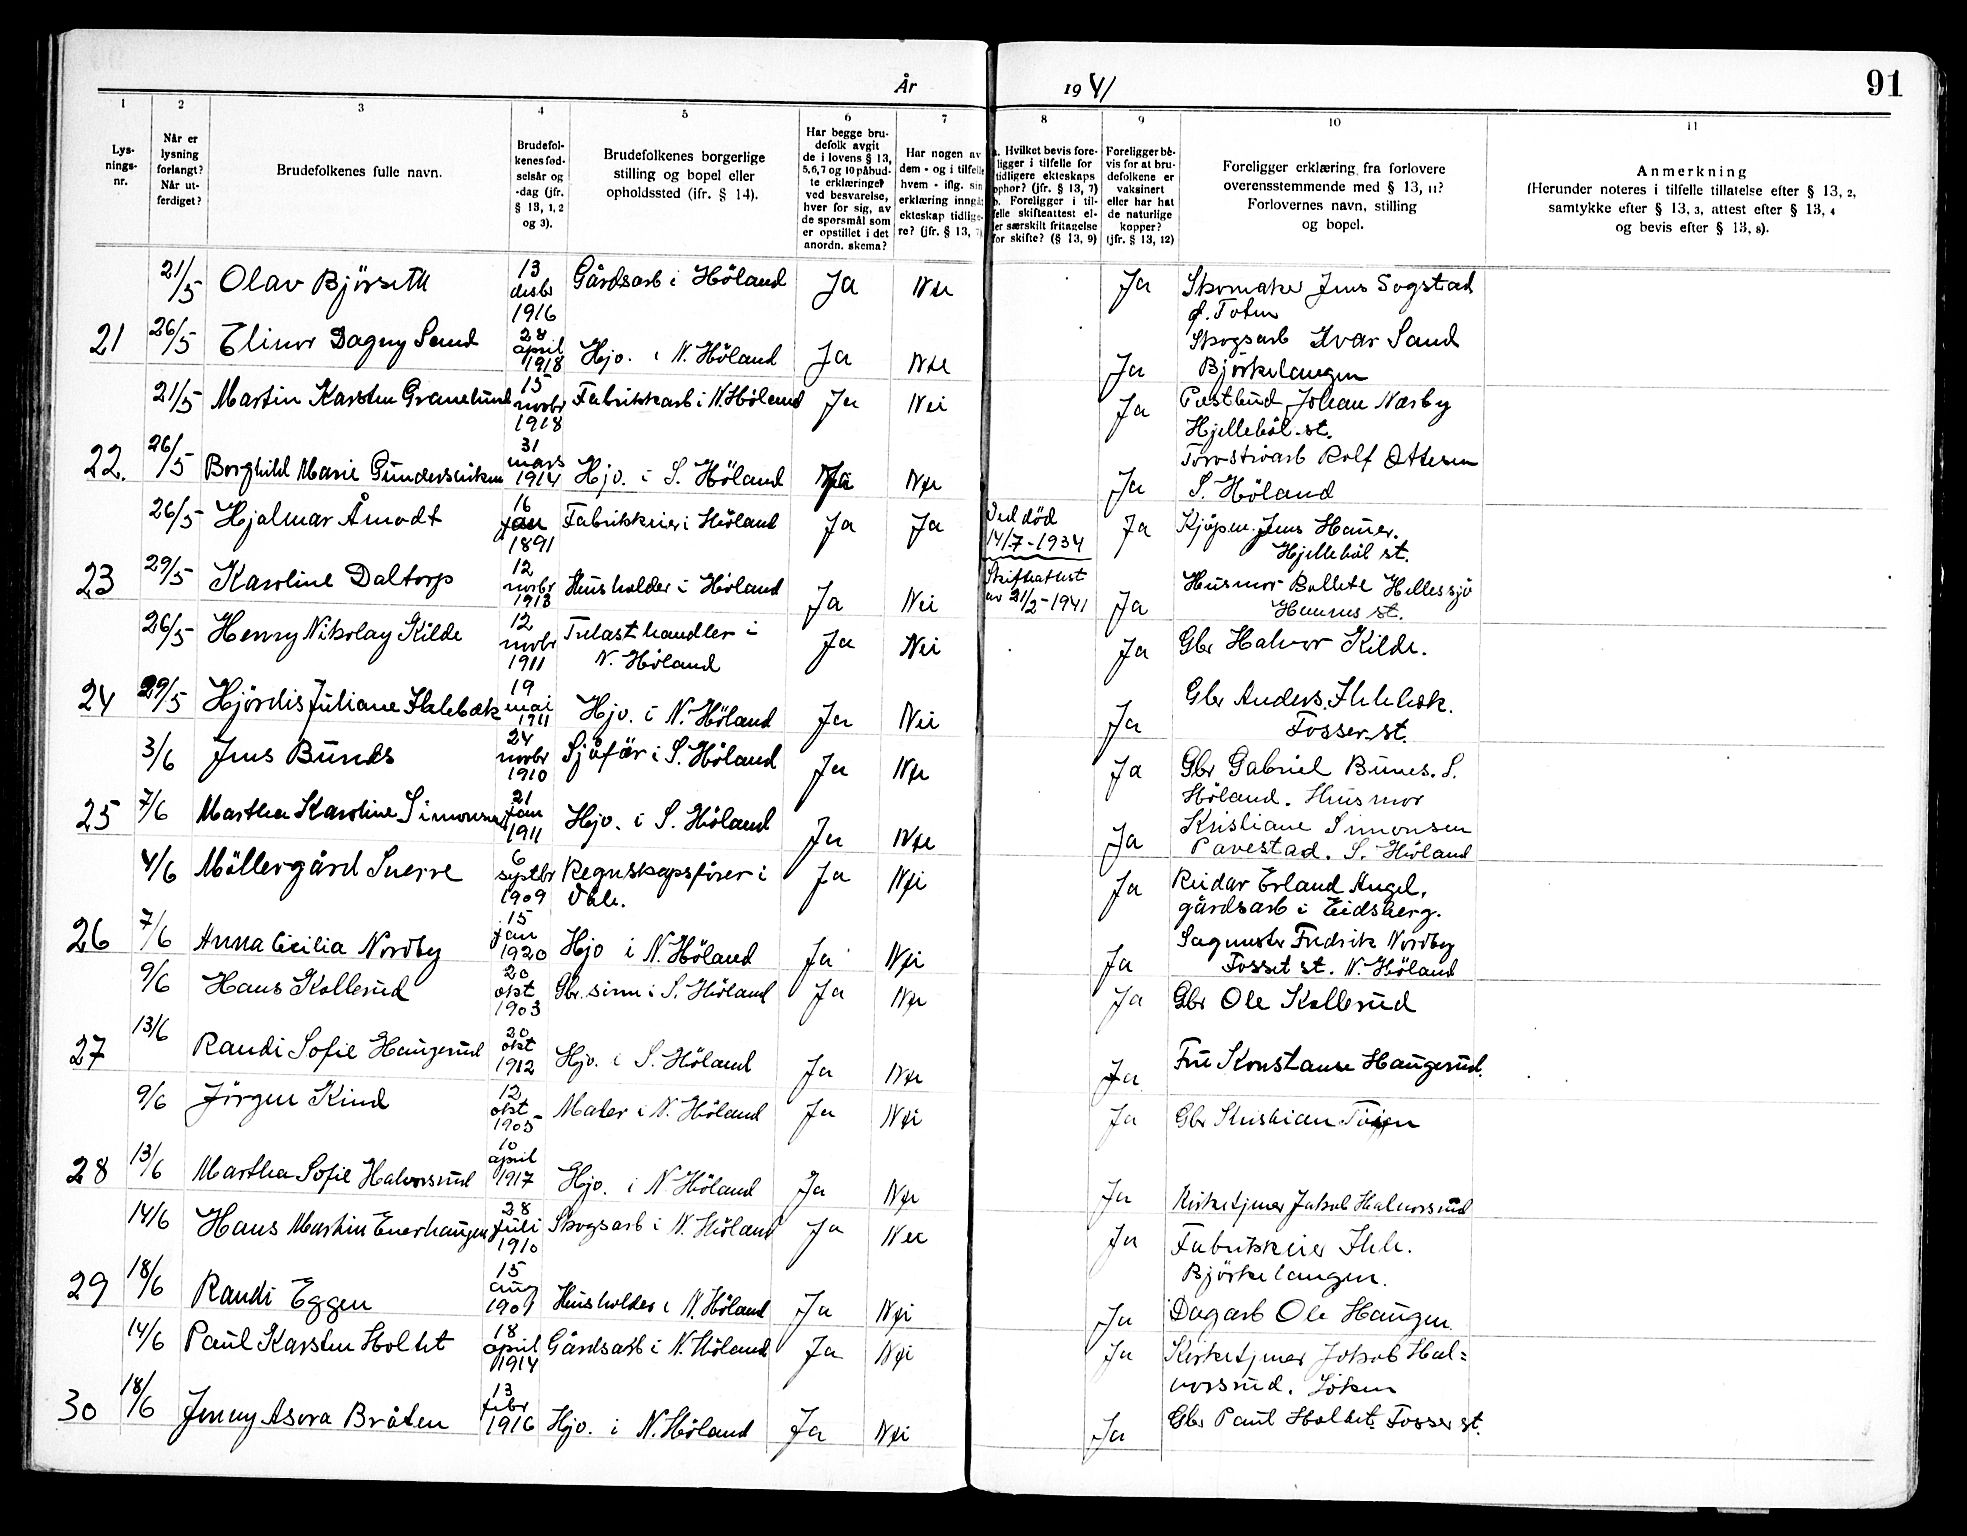 År 1941
91
1 2 3 4 5 6 7 8 9 10 11
Lysnings-nr.
Når er lysning forlangt? Når utferdiget?
Brudefolkenes fulle navn.
Brudefolkenes fødselsår og -dag (jfr. § 13, 1, 2 og 3).
Brudefolkenes borgerlige stilling og bopel eller opholdssted (ifr. § 14).
Har begge brudefolk avgit de i lovens § 13, 5, 6, 7 og 10 påbudte erklæringer ved besvarelse, hver for sig, av de spørsmål som er opstillet i det anordn. skema?
Har nogen av dem - og i tilfelle hvem - iflg. sin erklæring inngåt ekteskap tidligere? (jfr. § 13, 7)
a. Hvilket bevis foreligger i tilfelle for tidligere ekteskaps ophør? (jfr. § 13, 7) b. Foreligger i tilfelle skifteattest eller særskilt fritagelse for skifte? (§ 13, 9)
Foreligger bevis for at brudefolkene er vaksinert eller har hat de naturlige kopper? (jfr. § 13, 12)
Foreligger erklæring fra forlovere overensstemmende med § 13, 11? Forlovernes navn, stilling og bopel.
Anmerkning (Herunder noteres i tilfelle tillatelse efter § 13, 2, samtykke efter § 13, 3, attest efter § 13, 4 og bevis efter § 13, 8).
21/5 Olav Bjørseth 13 desbr 1916 Gårdsarb i Höland Ja Nei Ja Skomaker Jens Sogstad Ø. Toten
21 26/5 Elinor Dagny Sand 28 april 1918 Hjv. i N. Höland Ja Nei Ja Skogsarb Ivar Sand Björkelangen
21/5 Martin Karsten Granelund 15 novbr 1918 Fabrikkarb i N. Höland Ja Nei Ja Postbud Johan Næsby Hjellebøl st.
22. 26/5 Borghild Marie Gundersviken 31 mars 1914 Hjv. i S. Höland Ja Nei Ja Torvstrøarb Rolf Ottesen S. Höland
26/5 Hjalmar Åmodt 16 jan 1891 Fabrikkeier i Höland Ja Ja Ved död 14/7-1934 Ja Kjøpm. Jens Hauer. Hjellebøl st.
23 29/5 Karoline Daltorp 12 novbr 1913 Husholder i Höland Ja Nei Skifteattest av 21/2-1941 Ja Husmor Bollete Hellesjø Hemnes st.
26/5 Henry Nikolay Kilde 12 novbr 1911 Trelasthandler i N. Höland Ja Nei Ja Gbr Halvor Kilde.
24 29/5 Hjördis Juliane Ihlebæk 19 mai 1911 Hjv. i N. Höland Ja Nei Ja Gbr Anders Ihlebæk. Fosser st.
3/6 Jens Bunes 24 novbr 1910 Sjåfør i S. Höland Ja Nei Ja Gbr Gabriel Bunes. S. Höland. Husmor
25 7/6 Martha Karoline Simonsen 21 jan 1911 Hjv. i S. Höland Ja Nei Ja Kristiane Simonsen Pavestad. S. Höland
4/6 Möllergård Sverre 6 septbr 1909 Regnskapsfører i Våle. Ja Nei Ja Reidar Erland Angel, gårdsarb i Eidsberg.
26 7/6 Anna Cicilia Nordby 15 jan 1920 Hjv i N. Höland Ja Nei Ja Sagmester Fredrik Nordby Fosser st. N. Höland
9/6 Hans Kollerud 20 okt 1903 Gbr. sønn i S. Höland Ja Nei Ja Gbr Ole Kollerud
27 13/6 Randi Sofie Haugerud 20 okt 1912 Hjv. i S. Höland Ja Nei Ja Fru Konstanse Haugerud.
9/6 Jörgen Kind 12 okt 1905 Maler i N. Höland Ja Nei Ja Gbr Kristian
28 13/6 Martha Sofie Halvorsrud 10 april 1917 Hjv. i N. Höland Ja Nei Ja Kirketjener Jakob Halvorsrud
14/6 Hans Martin Enerhaugen 28 juli 1910 Skogsarb i N. Höland Ja Nei Ja Fabrikkeier Ihle. Björkelangen.
29 18/6 Randi Eggen 15 aug 1901 Husholder i N. Höland Ja Nei Ja Dagarb Ole Haugen
14/6 Paul Karsten Holtet 18 april 1914 Gårdsarb i N. Höland Ja Nei Ja Kirketjener Jakob Halvorsrud. Löken
30 18/6 Jenny Asora Bråten 13 febr 1916 Hjv. i N. Höland Ja Nei Ja Gbr Paul Holtet Fosser st.